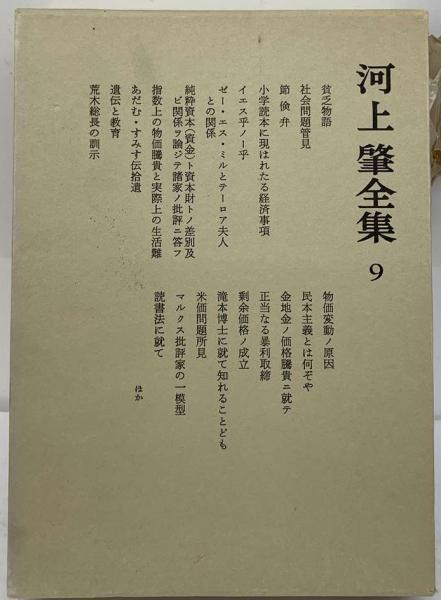 河上肇全集 9
貧乏物語
社会問題管見
節倹弁
小学読本に現はれたる経済事項
イエス乎ノー乎
ゼー・エス・ミルとテーロア夫人
との関係
純粋資本(資金)ト資本財トノ差別及
ビ関係ヲ論ジテ諸家ノ批評ニ答フ
指数上の物価騰貴と実際上の生活難
あだむ・すみす伝拾遺
遺伝と教育
荒木総長の訓示
物価変動ノ原因
民本主義とは何ぞや
金地金ノ価格騰貴ニ就テ
正当なる暴利取締
剰余価格ノ成立
滝本博士に就て知れることども
米価問題所見
マルクス批評家の一模型
読書法に就て
ほか